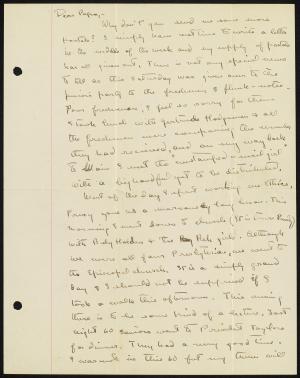 Dear Papa,-
Why don't you send me some more
postals? I simply have not time to write a letter
in the middle of the week and my supply of postals
has all given out. There is not any special news
to tell as this Saturday was given over to the
junior party to the freshmen & flunk-notes.
Poor freshmen, I feel so sorry for them
I took lunch with Gertrude & all
the freshmen were comparing the
they had received, and on my way back
to Main I met the
with a big handful yet to be distributed.
Most of the day I spent working on Ethics,
Pussy gave us a long lesson. This
morning I went down to church
with Ruby & the girls. Although
we were all four Presbyterians, we went to
the Episcopal church. It is a simply grand
day & I should not be surprised if I
took a walk this afternoon. This evening
there is to be some kind of a lecture. Last
night 60 seniors went to President Taylor's
for dinner. They had a very good time.
I was not in this 60 but my turn will